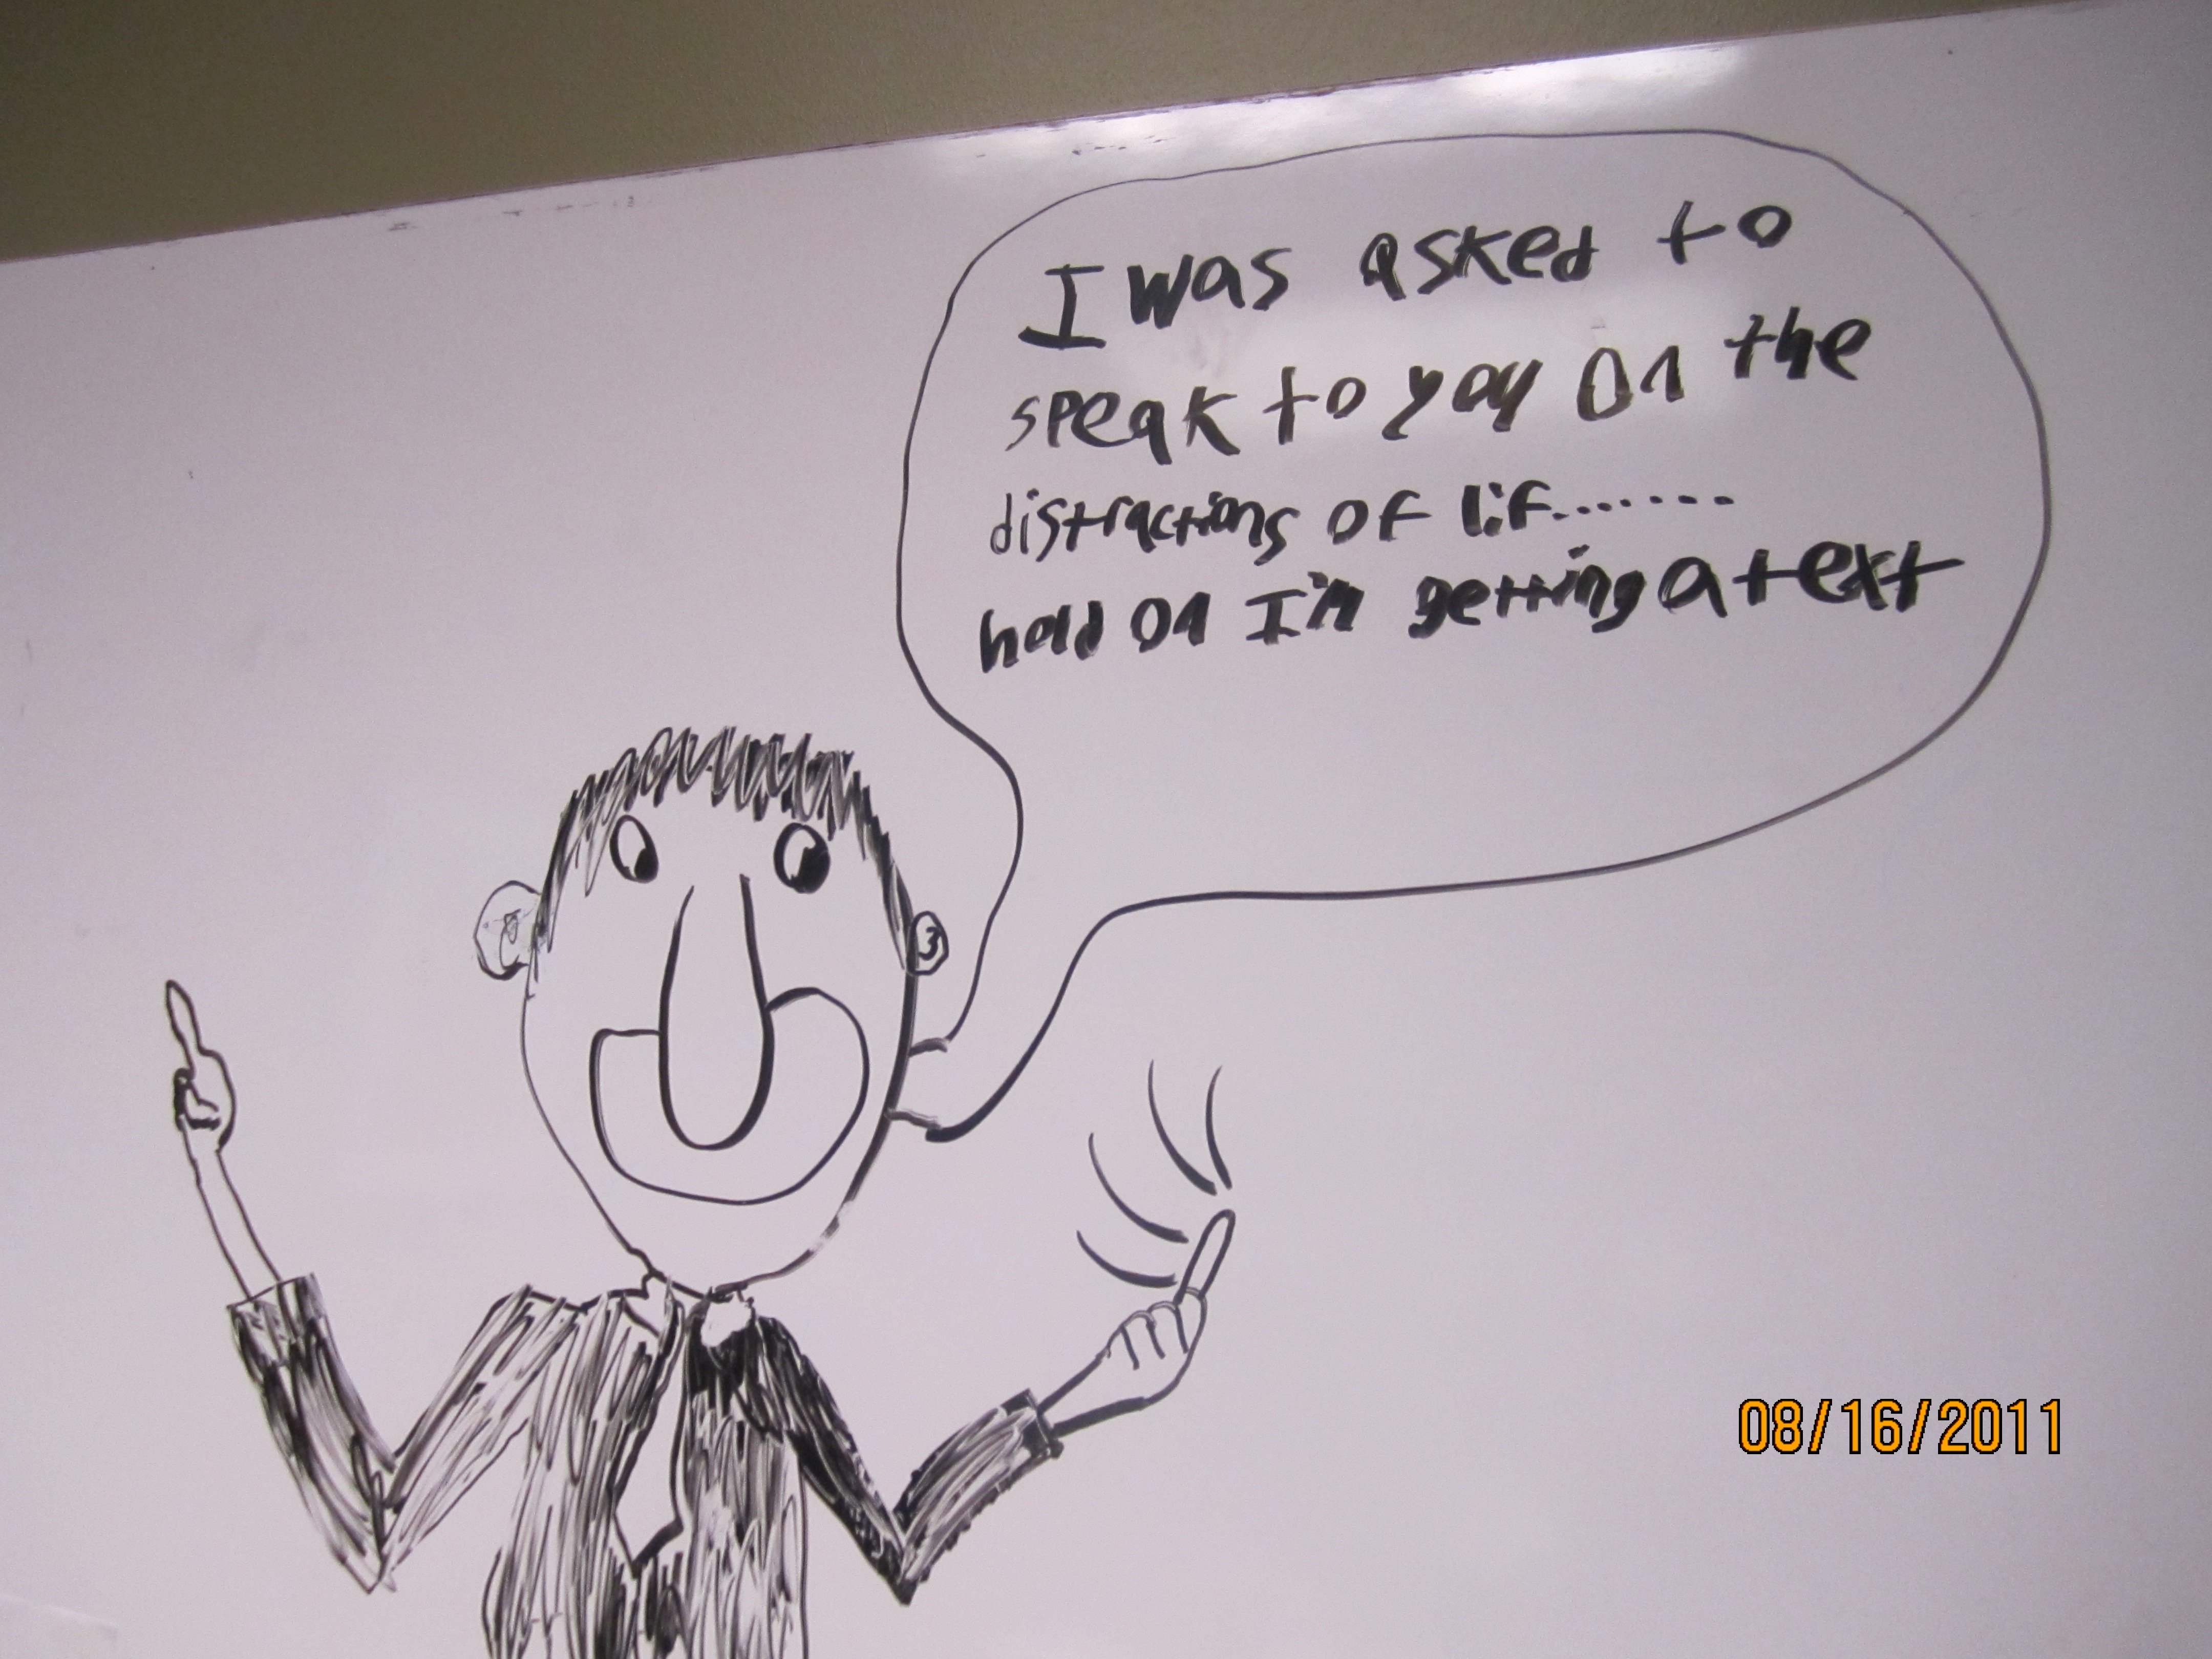 I was asked to
speak to you on the
distractions of lif.......
hold on I'm getting a text
08/16/2011